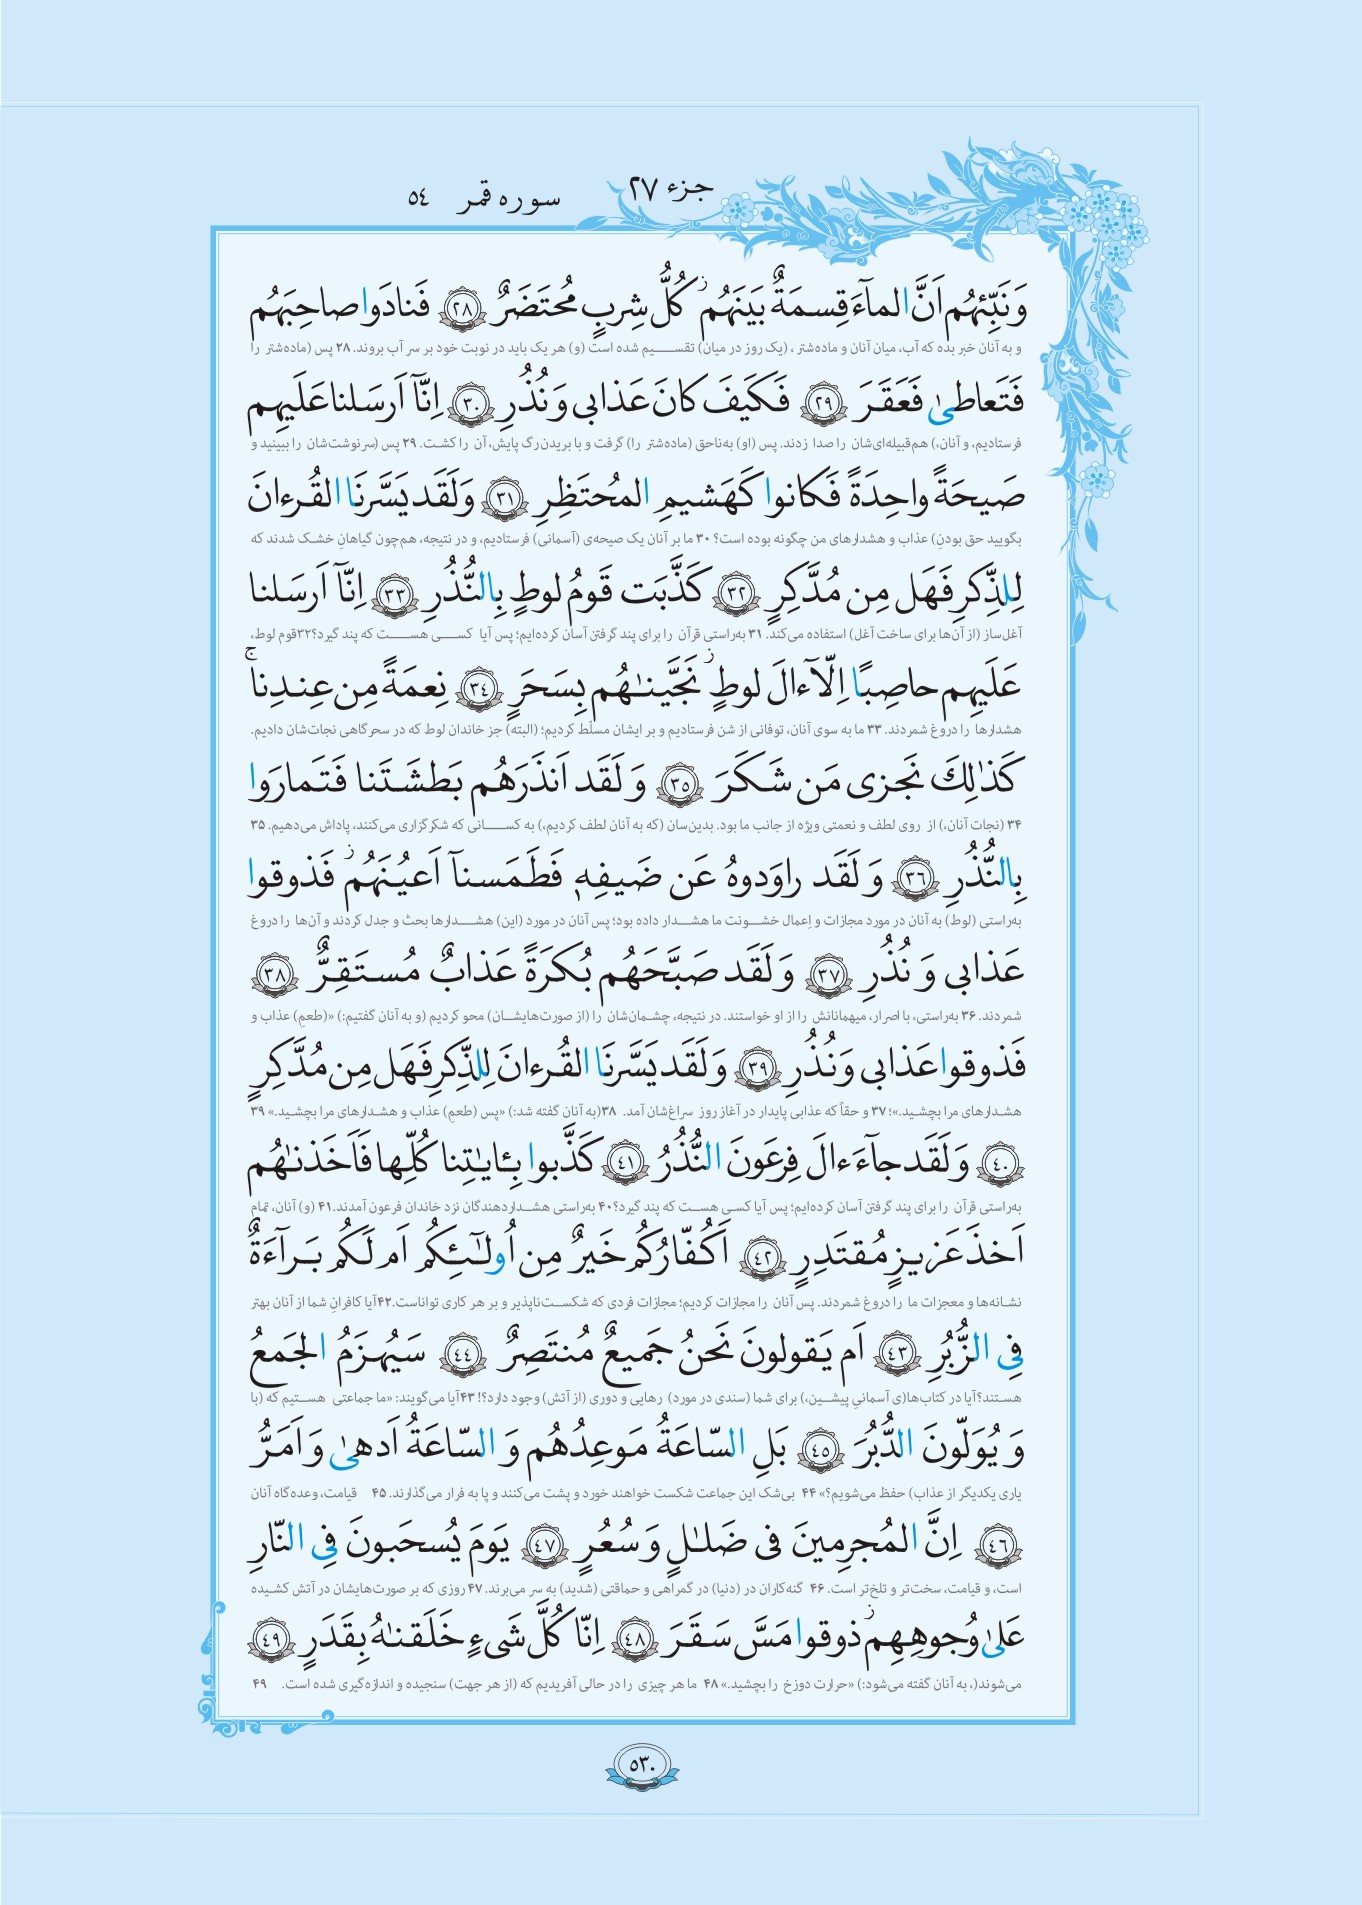 جزء ۲۷
سوره قمر ٥٤
وَ نَبِّئهُم اَنَّ الماۤءَ قِسمَةٌ بَینَهُم ۖ ز کُلُّ شِربٍ مُحتَضَرٌ ﴿٢٨﴾ فَنادَوا صاحِبَهُم
و به آنان خبر بده که آب، میان آنان و ماده‌شتر ، (یک روز در میان) تقسیم شده است (و) هر یک باید در نوبت خود بر سر آب بروند. ۲۸ پس (ماده‌شتر را
فَتَعاطیٰ فَعَقَرَ ﴿٢٩﴾ فَکَیفَ کانَ عَذابی وَ نُذُرِ ﴿٣٠﴾ اِنّاۤ اَرسَلنا عَلَیهِم
فرستادیم، و آنان،) هم‌قبیله‌ای‌شان را صدا زدند. پس (او) به‌ناحق (ماده‌شتر را) گرفت و با بریدن رگ پایش، آن را کشت. ۲۹ پس (سرنوشت‌شان را ببینید و
صَیحَةً واحِدَةً فَکانوا کَهَشیمِ المُحتَظِرِ ﴿٣١﴾ وَ لَقَد یَسَّرنَا القُرءانَ
بگویید حق بودنِ) عذاب و هشدارهای من چگونه بوده است؟ ۳۰ ما بر آنان یک صیحه‌ی (آسمانی) فرستادیم، و در نتیجه، هم‌چون گیاهانِ خشک شدند که
لِلذِّکرِ فَهَل مِن مُدَّکِرٍ ﴿٣٢﴾ کَذَّبَت قَومُ لوطٍ بِالنُّذُرِ ﴿٣٣﴾ اِنّاۤ اَرسَلنا
آغل‌ساز (از آن‌ها برای ساخت آغل) استفاده می‌کند. ۳۱ به‌راستی قرآن را برای پند گرفتن آسان کرده‌ایم؛ پس آیا کسی هست که پند گیرد؟۳۲قوم لوط،
عَلَیهِم حاصِبًا اِلّاۤ ءالَ لوطٍ ز نَجَّینٰهُم بِسَحَرٍ ﴿٣٤﴾ نِعمَةً مِن عِندِنا ج
هشدارها را دروغ شمردند. ۳۳ ما به سوی آنان، توفانی از شن فرستادیم و بر ایشان مسلّط کردیم؛ (البته) جز خاندان لوط که در سحرگاهی نجات‌شان دادیم.
کَذٰلِکَ نَجزی مَن شَکَرَ ﴿٣٥﴾ وَ لَقَد اَنذَرَهُم بَطشَتَنا فَتَمارَوا
۳۴ (نجات آنان،) از روی لطف و نعمتی ویژه از جانب ما بود. بدین‌سان (که به آنان لطف کردیم،) به کسانی که شکرگزاری می‌کنند، پاداش می‌دهیم. ۳۵
بِالنُّذُرِ ﴿٣٦﴾ وَ لَقَد راوَدوهُ عَن ضَیفِهٖ فَطَمَسناۤ اَعیُنَهُم ز فَذوقوا
به‌راستی (لوط) به آنان در مورد مجازات و اِعمال خشونت ما هشدار داده بود؛ پس آنان در مورد (این) هشدارها بحث و جدل کردند و آن‌ها را دروغ
عَذابی وَ نُذُرِ ﴿٣٧﴾ وَ لَقَد صَبَّحَهُم بُکرَةً عَذابٌ مُستَقِرٌّ ﴿٣٨﴾
شمردند. ۳۶ به‌راستی، با اصرار، میهمانانش را از او خواستند. در نتیجه، چشمان‌شان را (از صورت‌هایشان) محو کردیم (و به آنان گفتیم:) «(طعمِ) عذاب و
فَذوقوا عَذابی وَ نُذُرِ ﴿٣٩﴾ وَ لَقَد یَسَّرنَا القُرءانَ لِلذِّکرِ فَهَل مِن مُدَّکِرٍ
هشدارهای مرا بچشید.»؛ ۳۷ و حقاً که عذابی پایدار در آغاز روز سراغ‌شان آمد. ۳۸(به آنان گفته شد:) «پس (طعم) عذاب و هشدارهای مرا بچشید.» ۳۹
﴿٤٠﴾ وَ لَقَد جاۤءَ ءالَ فِرعَونَ النُّذُرُ ﴿٤١﴾ کَذَّبوا بِـٔایٰتِنا کُلِّها فَاَخَذنٰهُم
به‌راستی قرآن را برای پند گرفتن آسان کرده‌ایم؛ پس آیا کسی هست که پند گیرد؟۴۰ به‌راستی هشداردهندگان نزد خاندان فرعون آمدند.۴۱ (و) آنان، تمام
اَخذَ عَزیزٍ مُقتَدِرٍ ﴿٤٢﴾ اَکُفّارُکُم خَیرٌ مِن اُولٰۤئِکُم اَم لَکُم بَراۤءَةٌ
نشانه‌ها و معجزات ما را دروغ شمردند. پس آنان را مجازات کردیم؛ مجازات فردی که شکست‌ناپذیر و بر هر کاری تواناست.۴۲آیا کافرانِ شما از آنان بهتر
فِی الزُّبُرِ ﴿٤٣﴾ اَم یَقولونَ نَحنُ جَمیعٌ مُنتَصِرٌ ﴿٤٤﴾ سَیُهزَمُ الجَمعُ
هستند؟آیا در کتاب‌ها(ی آسمانیِ پیشین،) برای شما (سندی در مورد) رهایی و دوری (از آتش) وجود دارد؟! ۴۳آیا می‌گویند: «ما جماعتی هستیم که (با
وَ یُوَلّونَ الدُّبُرَ ﴿٤٥﴾ بَلِ السّاعَةُ مَوعِدُهُم وَ السّاعَةُ اَدهیٰ وَ اَمَرُّ
یاری یکدیگر از عذاب) حفظ می‌شویم؟» ۴۴ بی‌شک این جماعت شکست خواهند خورد و پشت می‌کنند و پا به فرار می‌گذارند. ۴۵ قیامت، وعده‌گاه آنان
﴿٤٦﴾ اِنَّ المُجرِمینَ فی ضَلٰلٍ وَ سُعُرٍ ﴿٤٧﴾ یَومَ یُسحَبونَ فِی النّارِ
است، و قیامت، سخت‌تر و تلخ‌تر است. ۴۶ گنه‌کاران در (دنیا) در گمراهی و حماقتی (شدید) به سر می‌برند. ۴۷ روزی که بر صورت‌هایشان در آتش کشیده
عَلیٰ وُجوهِهِم ز ذوقوا مَسَّ سَقَرَ ﴿٤٨﴾ اِنّا کُلَّ شَیءٍ خَلَقنٰهُ بِقَدَرٍ ﴿٤٩﴾
می‌شوند(، به آنان گفته می‌شود:) «حرارت دوزخ را بچشید.» ۴۸ ما هر چیزی را در حالی آفریدیم که (از هر جهت) سنجیده و اندازه‌گیری شده است. ۴۹
٥٣٠